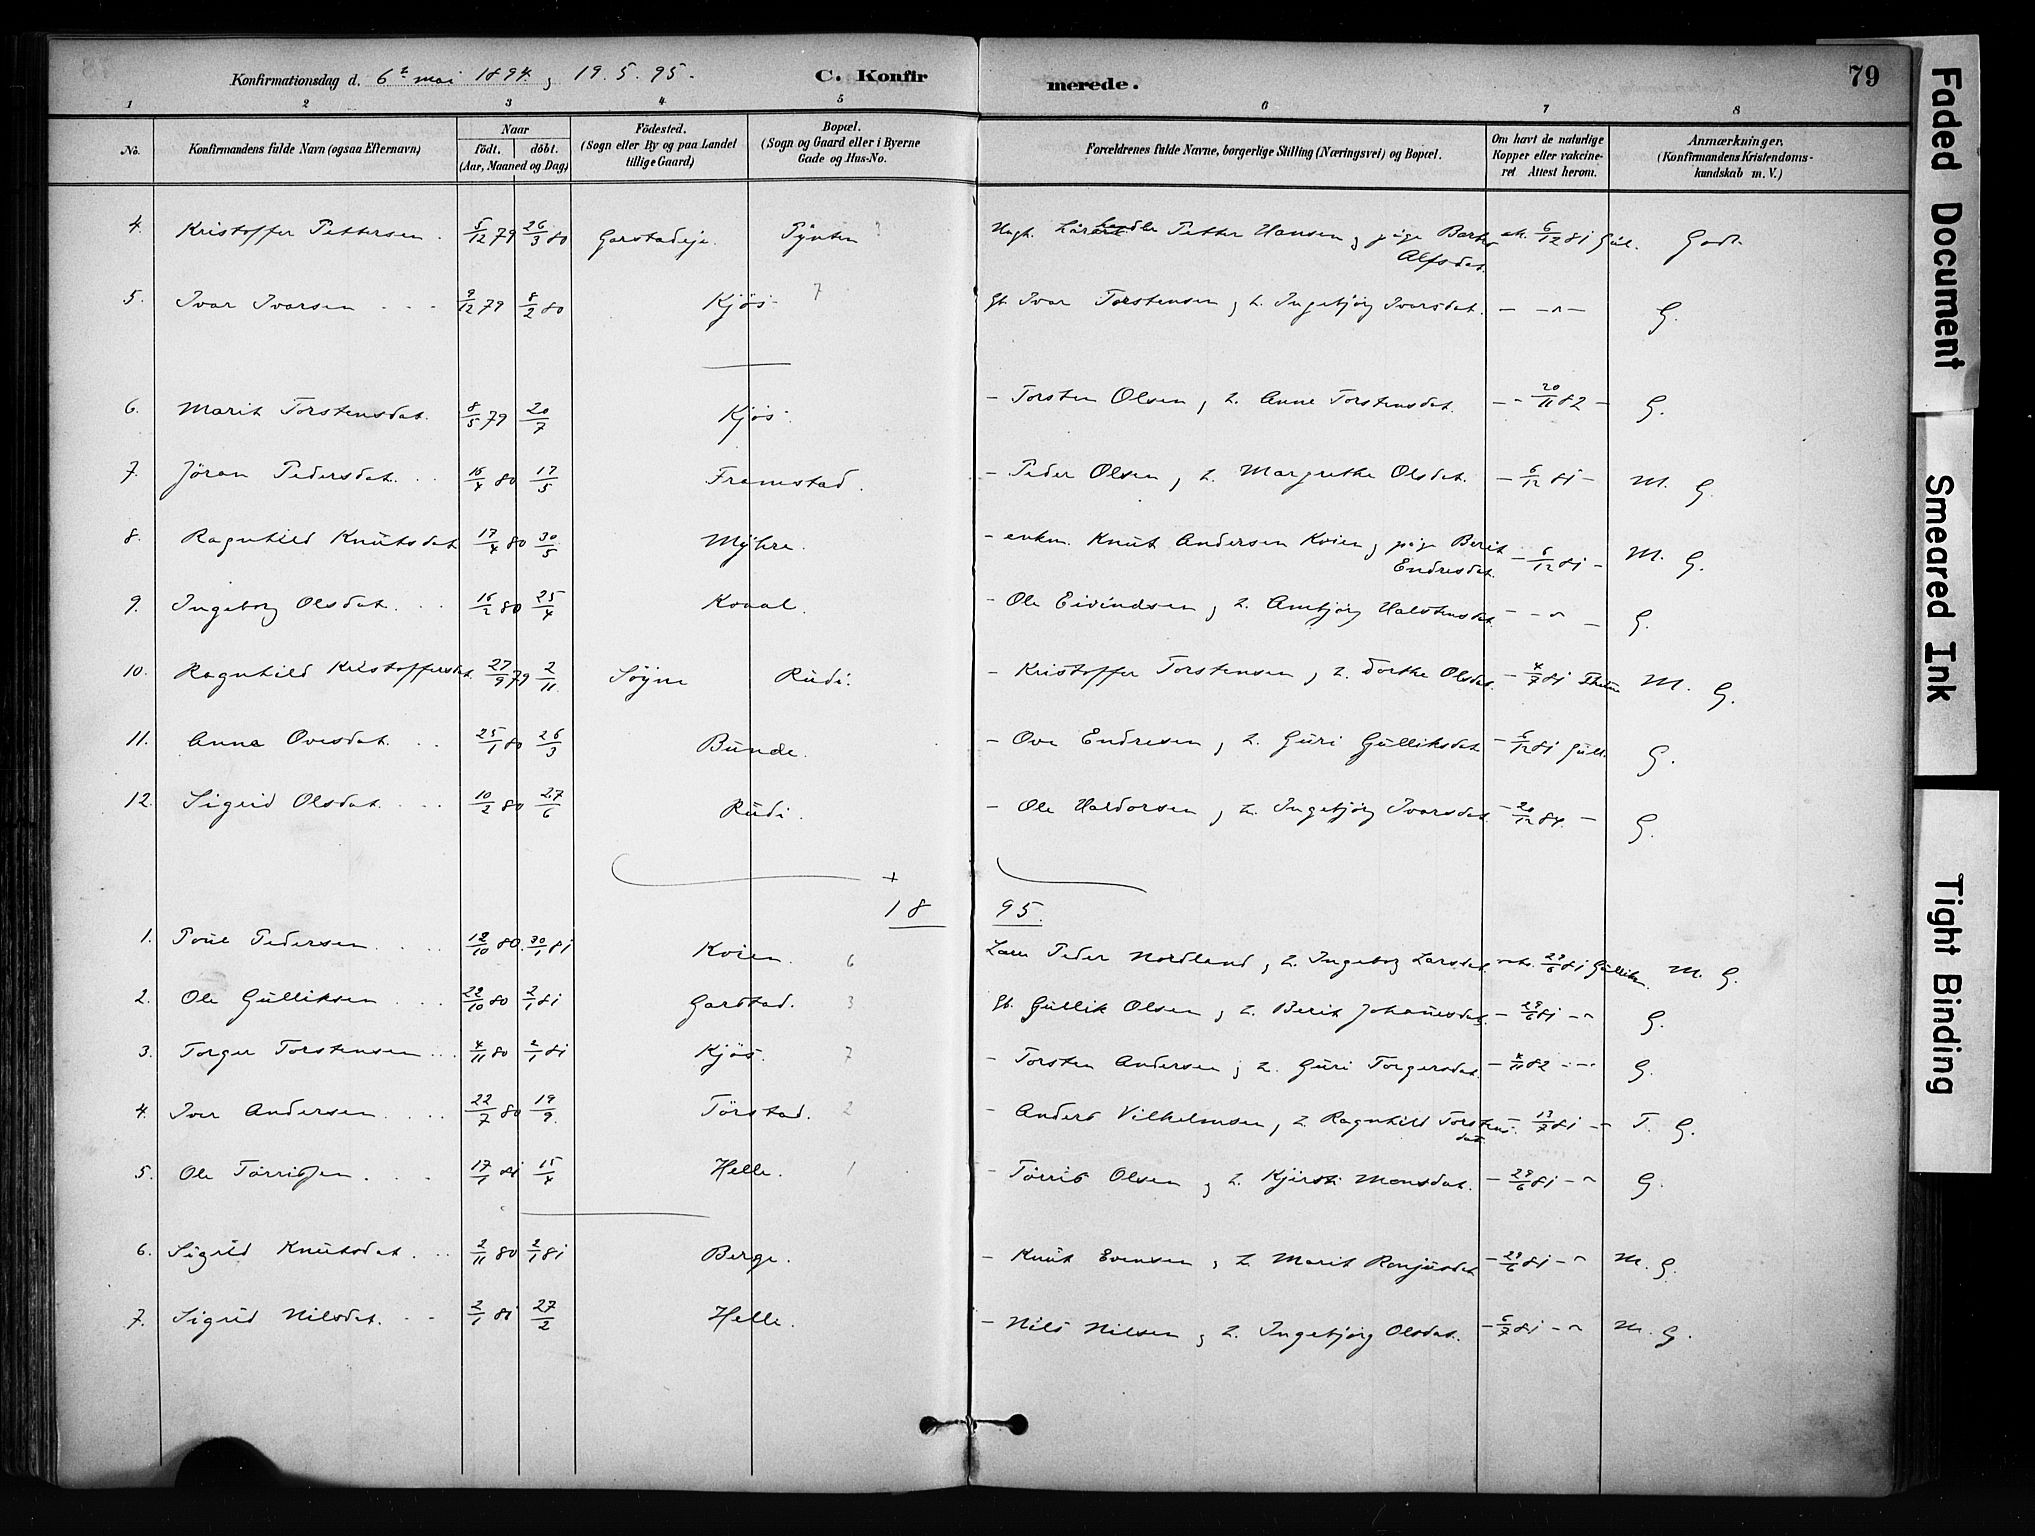 Konfirmationsdag d. 6te mai 1894 , 19. 5. 95.
C. Konfirmerede.
79
1 2 3 4 5 6 7 8
No.
Konfirmandens fulde Navn (ogsaa Efternavn)
Naar
födt. döbt.
(Aar, Maaned og Dag)
Födested.
(Sogn eller By og paa Landet
tillige Gaard)
Bopæl.
(Sogn og Gaard eller i Byerne
Gade og Hus-No.
Forældrenes fulde Navne, borgerlige Stilling (Næringsvei) og Bopæl.
Om havt de naturlige
Kopper eller vakcine-
ret Attest herom.
Anmærkninger.
(Konfirmandens Kristendoms-
kundskab m. V.)
4. Kristoffer Pettersen. 5/12 79 26/3 80 Garstadeje. Pynten Petter Hansen pige 6/12 81 Gul. Godt.
Alfsdat.
5. Ivar Ivarsen 9/12 79 8/2 80 Kjøs 7 gb. Ivar Torstensen , h. Ingebjörg Ivarsdat. G.
6. Marit Torstensdat. 8/5 79 20/7 Kjøs. - Torsten Olsen , h. Anne Torstensdat. 20/11 82 - G.
7. Jöran Pedersdat. 16/4 80 17/5 Framstad. - Peder Olsen , h. Margrethe Olsdat. - 6/12 81 - M. G.
8. Ragnhild Knutsdat 17/4 80 30/5 Myhre. - enkm. Knut Andersen Kvien , pige Berit - 6/12 81 - M. G.
Endresdat.
9. Ingeborg Olsdat. 16/2 80 25/4 Kvaal. - Ole Eivindsen , h. Halstensdat. G.
10. Ragnhild Kristoffersdat. 27/9 79 2/11 Søyne Rudi. - Kristoffer Torstensen , h. Dorthe Olsdat. - 4/7 81 M. G.
11. Anna Ovesdat. 25/1 80 26/3 Bunde. - Ove Endresen , h. Guri Gulliksdat - 6/12 81 Gull. G.
12. Sigrid Olsdat. 10/2 80 27/6 Rudi. - Ole Haldorsen , h. Ingebjörg Ivarsdat. - 20/12 84. - G.
1895.
1. Poul Pedersen. 12/10 80. 30/1 81 Kvien. 6 Peder Nordland , h. Ingeborg Larsdat. 29/6 81 M. G.
2. Ole Gulliksen 22/10 80 2/1 81 Garstad. 3 gb. Gullik Olsen , h. Berit Johannesdat. - 29/6 81 - G.
3. Torger Torstensen 4/11 80 2/1 81 Kjøs. 7 - Torsten Andersen , h. Guri Torgersdat. - 82 G.
4. Iver Andersen. 22/7 80 19/9. Törstad. 2 - Anders Vilhelmsen , h. Ragnhild Torstens- 13/7 81 - T. G.
dat.
5. Ole Törrissen. 17/1 81 15/4 Helle. 1 - Törris Olsen , h. Kjersti Monsdat. - 29/6 81 - G.
6. Sigrid Knutsdat. 2/11 80 2/1 81 Berge. - Knut Evensen , h. Marit Ronjusdat - 29/6 81 - M. G.
7. Sigrid Nilsdat. 2/1 81 27/2 Helle. - Nils Nilsen , h. Ingebjörg Olsdat. - 5/7 81 - M. G.
Faded Document
Smeared Ink
Tight Binding